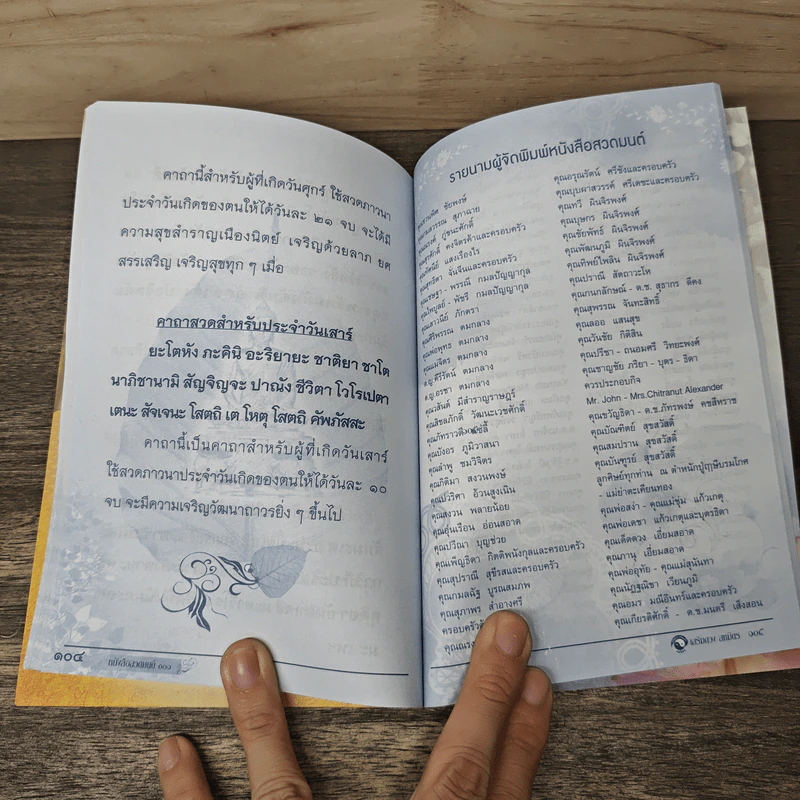 คาถานี้สำหรับผู้ที่เกิดวันศุกร์ ใช้สวดภาวนา
ประจำวันเกิดของตนให้ได้วันละ ๒๑ จบ จะได้มี
ความสุขสำราญเนืองนิตย์ เจริญด้วยลาภ ยศ
สรรเสริญ เจริญสุขทุก ๆ เมื่อ
คาถาสวดสำหรับประจำวันเสาร์
ยะโตหัง ภะคินิ อะริยายะ ชาติยา ชาโต
นาภิชานามิ สัญจิจจะ ปาณัง ชีวิตา โวโรเปตา
เตนะ สัจเจนะ โสตถิ เต โหตุ โสตถิ คัพภัสสะ
คาถานี้เป็นคาถาสำหรับผู้ที่เกิดวันเสาร์
ใช้สวดภาวนาประจำวันเกิดของตนให้ได้วันละ ๑๐
จบ จะมีความเจริญวัฒนาถาวรยิ่ง ๆ ขึ้นไป
๑๐๔
หนังสือสวดมนต์ ๑๐๑
รายนามผู้จัดพิมพ์หนังสือสวดมนต์
ชัยพงษ์
สุภาฉาย
กู้ชนะศักดิ์
คงจิตรค้าและครอบครัว
แสงเรืองไร
จั่นจีนและครอบครัว
พรรณี กมลปัญญากุล
คุณไพบูลย์ - พัชรี กมลปัญญากุล
คุณเสาวนีย์ ภักดรา
คุณศิริพรรณ ดมกลาง
คุณพ่อพุทธ ดมกลาง
คุณแม่จิตร ดมกลาง
ด.ญ.ศิริรัตน์ ดมกลาง
ด.ญ.อรชา ดมกลาง
คุณวสันต์ มีสำราญราษฎร์
คุณสิชลภักดิ์ วัฒนะเวชศักดิ์
คุณบังอร ภูมิวาสนา
คุณลำพู ชมวิจิตร
คุณกิติมา สงวนพงษ์
คุณปวริศา อ้วนสูงเนิน
คุณสงวน พลายน้อย
คุณอุ่นเรือน อ่อนสอาด
คุณปวีณา บุญช่วย
คุณเพ็ญธิดา กิตติพนังกุลและครอบครัว
คุณสุปราณี สุธีรสและครอบครัว
คุณกมลฉัฐ บูรณสมภพ
คุณสุภาพร สำอางศรี
คุณอรุณรัตน์ ศรีชังและครอบครัว
คุณบุบผาสวรรค์ ศรีเดชะและครอบครัว
คุณทวี ผินจิรพงศ์
คุณบุษกร ผินจิรพงศ์
คุณชัยพัทธ์ ผินจิรพงศ์
คุณพัฒนภูมิ ผินจิรพงศ์
คุณทิพย์ไพลิน ผินจิรพงศ์
คุณปราณี สัตถาวะโห
คุณกนกลักษณ์ - ด.ช. สุธากร ดีคง
คุณสุพรรณ จันทะสิทธิ์
คุณลออ แสนสุข
คุณวันชัย กิติสิน
คุณปรีชา - ถนอมศรี วิทยะพงศ์
คุณชาญชัย ภริยา - บุตร - ธิดา
ควรประกอบกิจ
Mr. John - Mrs.Chitranut Alexander
คุณขวัญธิดา - ด.ช.ภัทรพงษ์ คชสีหราช
คุณบัณฑิตย์ สุขสวัสดิ์
คุณสมปราน สุขสวัสดิ์
คุณบันฑูรย์ สุขสวัสดิ์
ลูกศิษย์ทุกท่าน ณ ตำหนักปู่ฤาษีบรมโกศ
- แม่ย่าตะเคียนทอง
คุณพ่อสง่า - คุณแม่ชุ่ม แก้วเกตุ
คุณพ่อเดชา แก้วเกตุและบุตรธิดา
คุณเด็ดดวง เอี่ยมสอาด
คุณภานุ เอี่ยมสอาด
คุณพ่ออุทัย - คุณแม่สุนันทา
คุณนัฏฐณิชา เวียนภูมิ
คุณอมร มณีอินทร์และครอบครัว
คุณเกียรติศักดิ์ - ด.ช.มนตรี เส็งสอน
๑๐๕